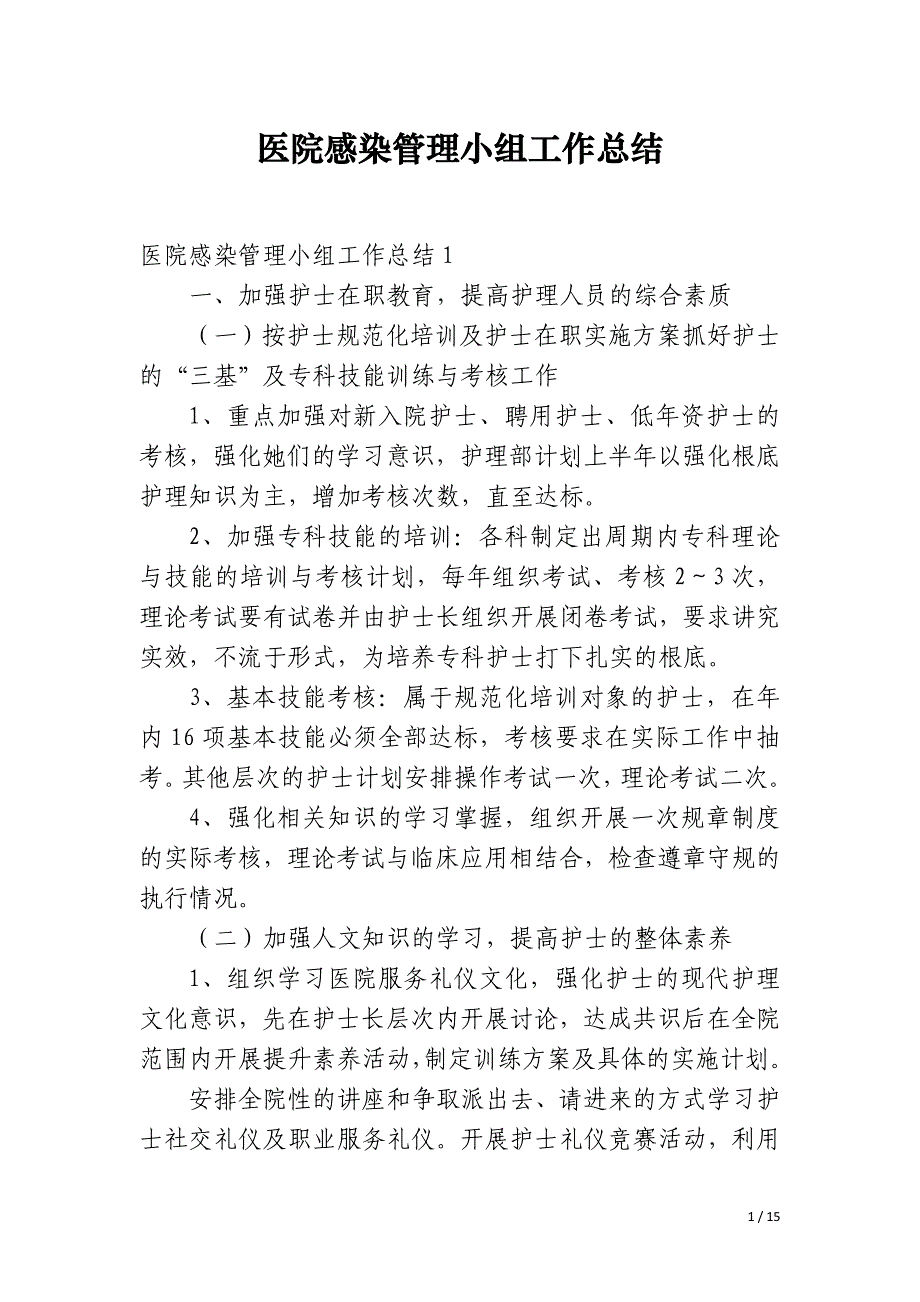 医院感染管理小组工作总结
医院感染管理小组工作总结 1
一、加强护士在职教育，提高护理人员的综合素质
（一）按护士规范化培训及护士在职实施方案抓好护士
的“三基”及专科技能训练与考核工作
1、重点加强对新入院护士、聘用护士、低年资护士的
考核，强化她们的学习意识，护理部计划上半年以强化根底
护理知识为主，增加考核次数，直至达标。
2、加强专科技能的培训：各科制定出周期内专科理论
与技能的培训与考核计划，每年组织考试、考核 2～3 次，
理论考试要有试卷并由护士长组织开展闭卷考试，要求讲究
实效，不流于形式，为培养专科护士打下扎实的根底。
3、基本技能考核：属于规范化培训对象的护士，在年
内 16 项基本技能必须全部达标，考核要求在实际工作中抽
考。其他层次的护士计划安排操作考试一次，理论考试二次。
4、强化相关知识的学习掌握，组织开展一次规章制度
的实际考核，理论考试与临床应用相结合，检查遵章守规的
执行情况。
（二）加强人文知识的学习，提高护士的整体素养
1、组织学习医院服务礼仪文化，强化护士的现代护理
文化意识，先在护士长层次内开展讨论，达成共识后在全院
范围内开展提升素养活动，制定训练方案及具体的实施计划。
安排全院性的讲座和争取派出去、请进来的方式学习护
士社交礼仪及职业服务礼仪。开展护士礼仪竞赛活动，利用
1 / 15